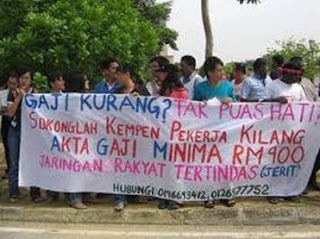 GAJI KURANG? TAK PUAS HATI?
SOKONGLAH KEMPEN PEKERJA KILANG
AKTA GAJI MINIMA RM 900
JARINGAN RAKYAT TERTINDAS (JERIT)
HUBUNGI 0176693412, 0126977752